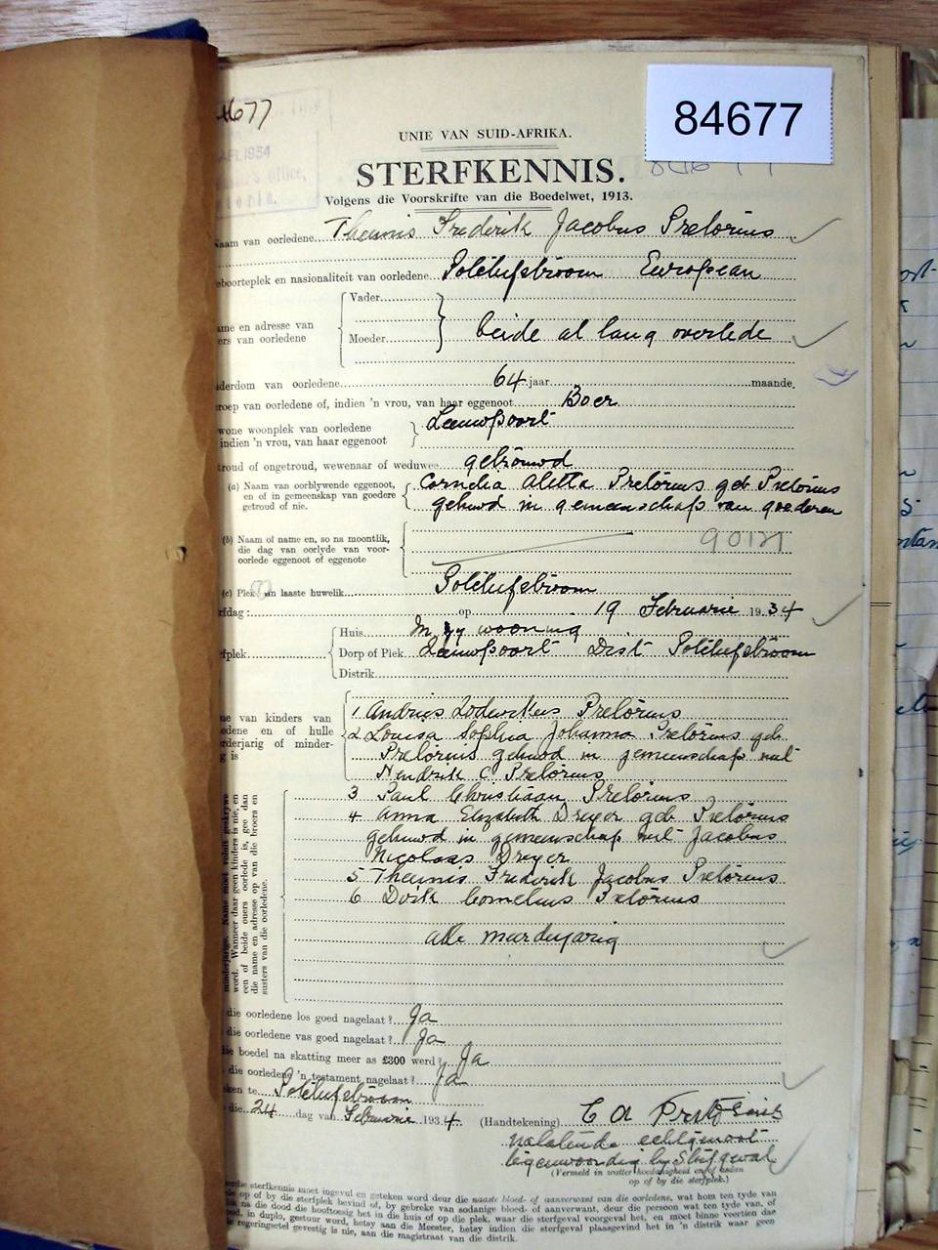 84677
UNIE VAN SUID-AFRIKA.
STERFKENNIS.
Volgens die Voorskrifte van die Boedelwet, 1913.
aam van oorledene Theunis Frederik Jacobus Pretorius
eboorteplek en nasionaliteit van oorledene Potchefstroom European
Vader
ame en adresse van
ers van oorledene
Moeder beide al lang overlede
derdom van oorledene 64 jaar maande.
roep van oorledene of, indien 'n vrou, van haar eggenoot Boer
wone woonplek van oorledene Leeuwpoort
indien 'n vrou, van haar eggenoot
troud of ongetroud, wewenaar of weduwee getrouwd
(a) Naam van oorblywende eggenoot, Cornelia Aletta Pretorius geb Pretorius
en of in gemeenskap van goedere gehuwd in gemeenschap van goederen
getroud of nie.
(b) Naam of name en, so na moontlik, 90121
die dag van oorlyde van voor-
oorlede eggenoot of eggenote
(c) Plek van laaste huwelik Potchefstroom
rfdag: op 19 Februarie 1934
Huis In zy wooning
fplek Dorp of Plek Leeuwpoort Dist Potchefstroom
Distrik
1 Andries Lodewikus Pretorius
me van kinders van
edene en of hulle 2 Louisa Sophia Johanna Pretorius geb
rderjarig of minder- Pretorius gehuwd in gemeenschap met
g is Hendrik C Pretorius
minderjarige. Name moet voluit geskrywe
word. Wanneer daar geen kinders is nie, en
een of beide ouers oorlede is, gee dan
die name en adresse op van die broers en
susters van die oorledene.
3 Paul Christiaan Pretorius
4 Anna Elizabeth Dreyer geb Pretorius
gehuwd in gemeenschap met Jacobus
Nicolaas Dreyer
5 Theunis Frederik Jacobus Pretorius
6 Dirk Cornelius Pretorius
alle meerderjarig
die oorledene los goed nagelaat? Ja
die oorledene vas goed nagelaat? Ja
ie boedel na skatting meer as £300 werd? Ja
die oorledene 'n testament nagelaat? Ja
ken te Potchefstroom
die 24 dag van Februarie 1934. (Handtekening) C A Pretorius
nalatende echtgenoot
tegenwoordig by Sterfgeval
(Vermeld in watter hoedanigheid en of anwesig
op of by die sterfplek.)
erdie sterfkennis moet ingevul en geteken word deur die naaste bloed- of aanverwant van die oorledene, wat hom ten tyde van
die op of by die sterfplek bevind of, by gebreke van sodanige bloed- of aanverwant, deur die persoon wat ten tyde van, of
na die dood die hooftoesig het in die huis of op die plek, waar die sterfgeval voorgeval het, en moet binne veertien dae
ood, in duplo, gestuur word, hetsy aan die Meester, hetsy indien die sterfgeval plaasgevind het in 'n distrik waar geen
ie regeringsetel gevestig is nie, aan die magistraat van die distrik.